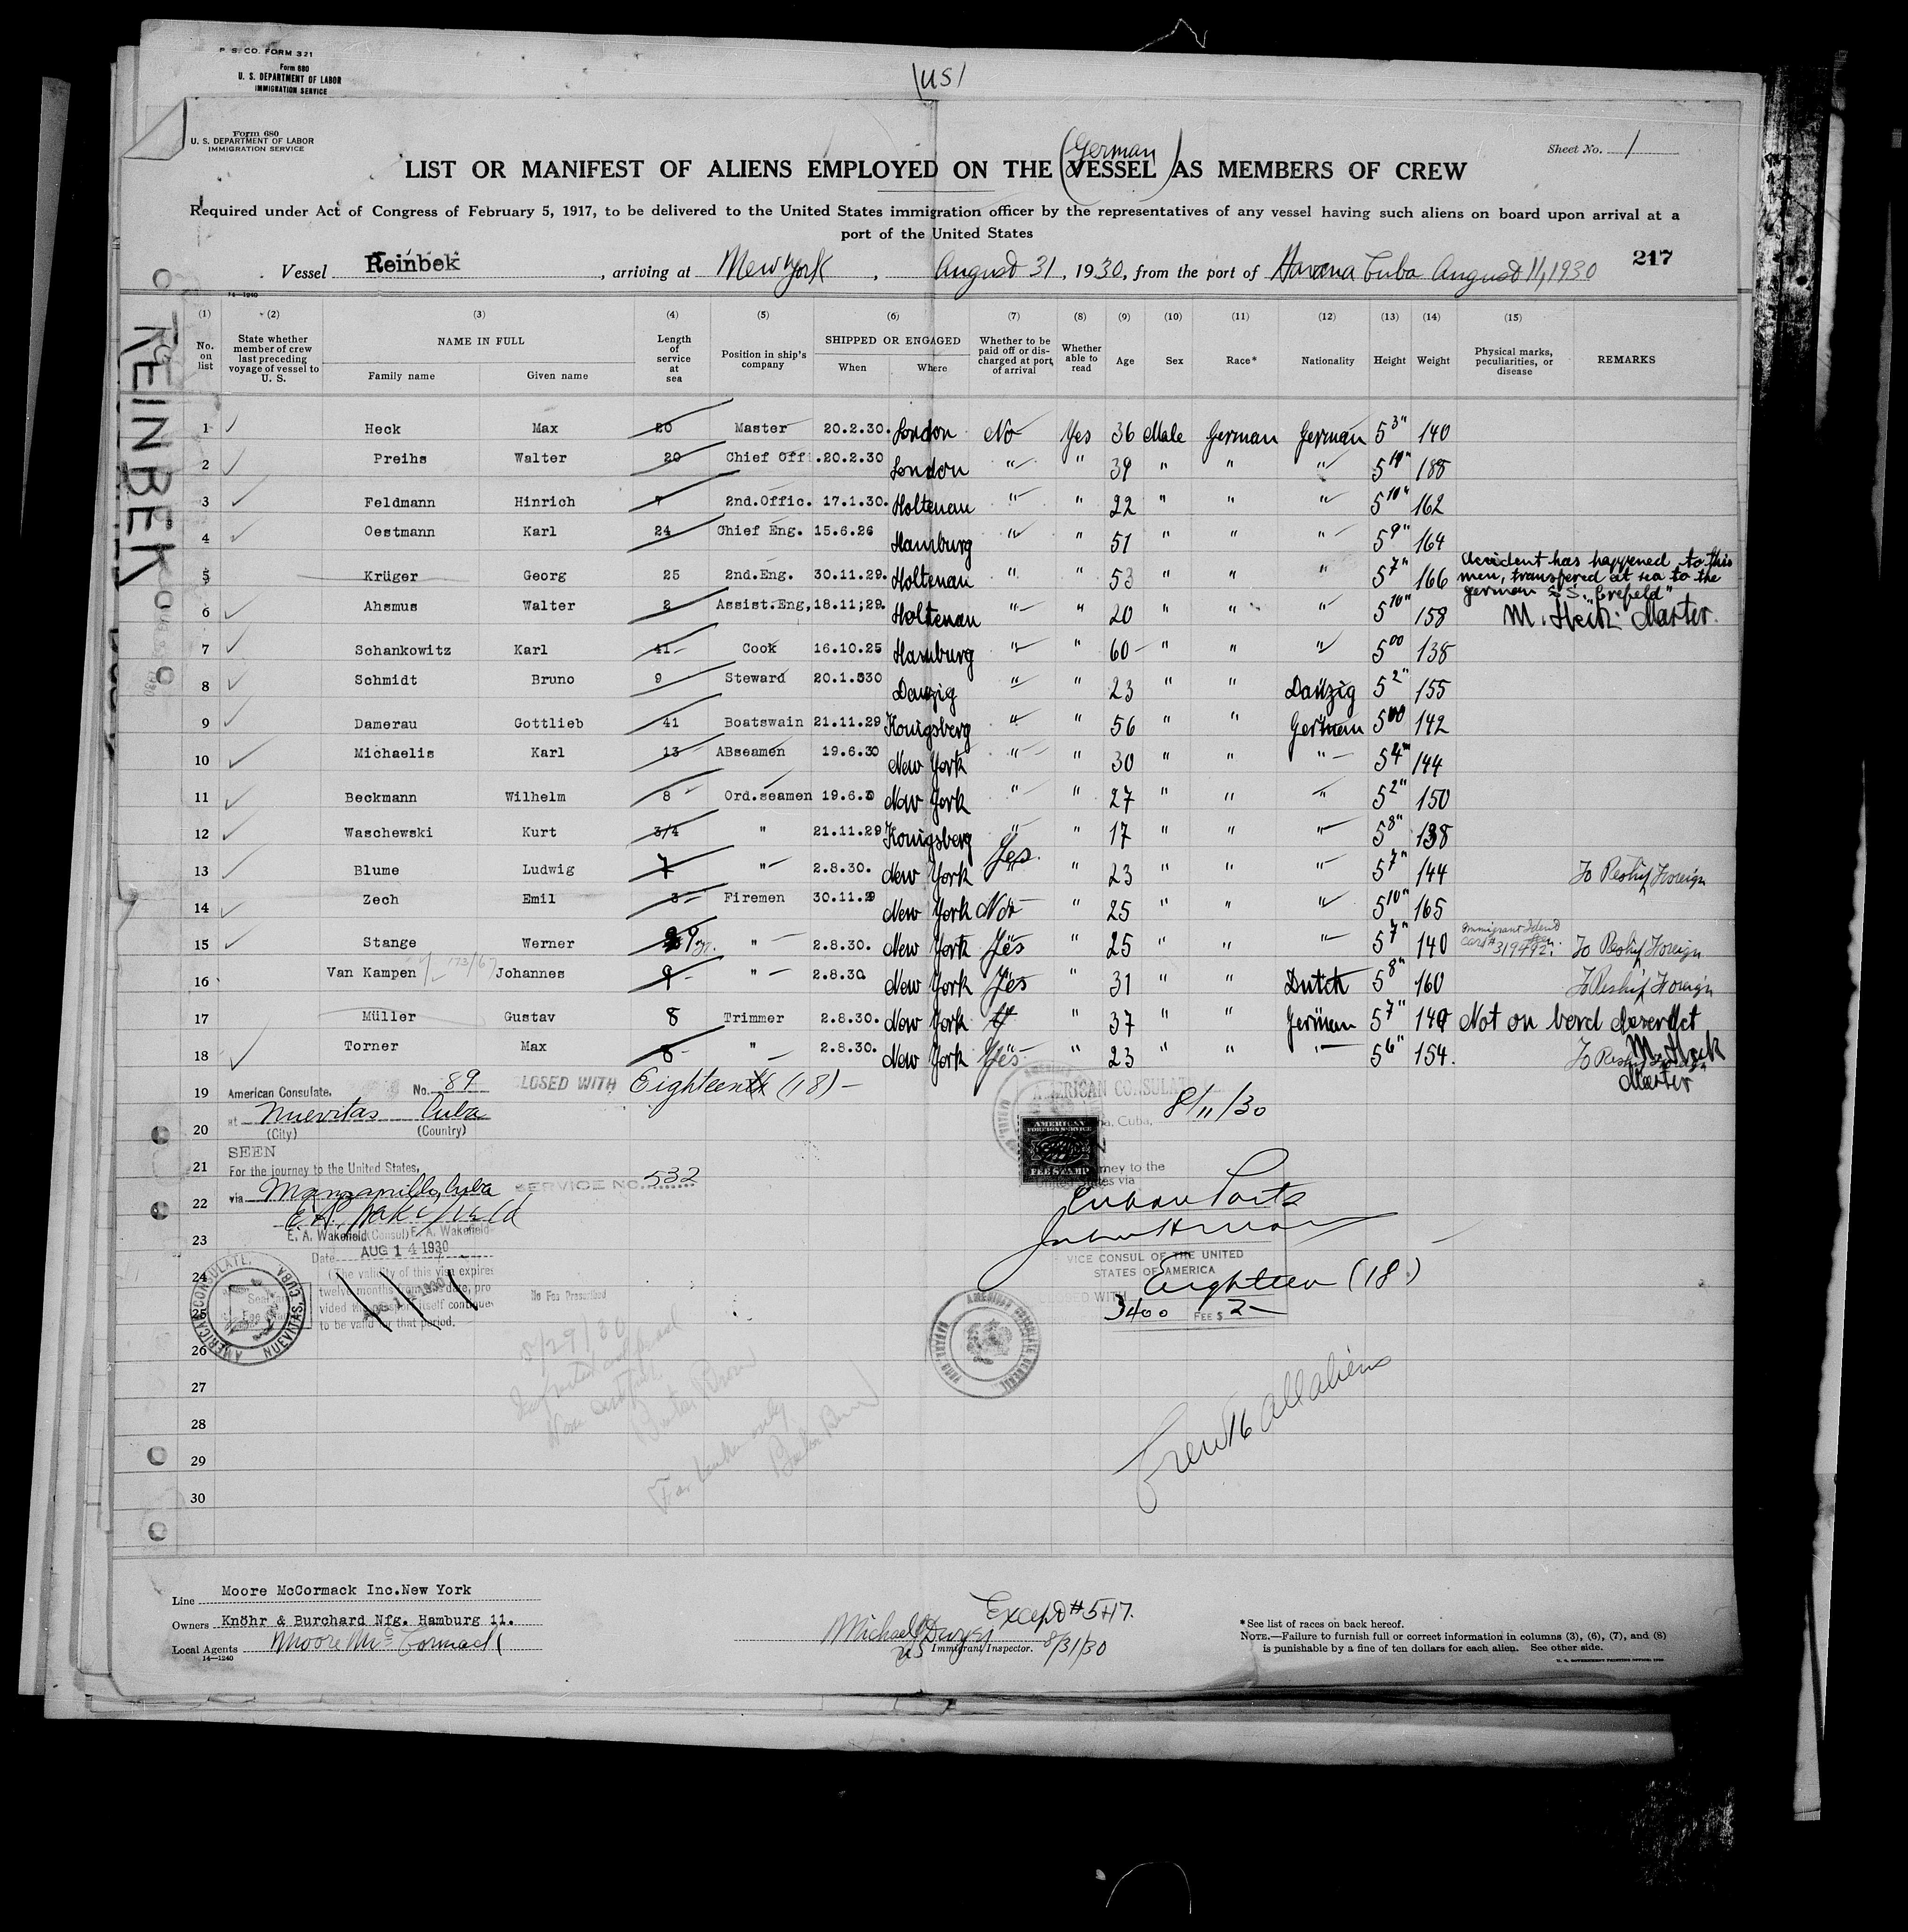 P. S. CO. FORM 321
Form 680
U. S. DEPARTMENT OF LABOR
IMMIGRATION SERVICE
US
Form 680
U. S. DEPARTMENT OF LABOR
IMMIGRATION SERVICE
Sheet No. 1
German
LIST OR MANIFEST OF ALIENS EMPLOYED ON THE (VESSEL) AS MEMBERS OF CREW
Required under Act of Congress of February 5, 1917, to be delivered to the United States immigration officer by the representatives of any vessel having such aliens on board upon arrival at a
port of the United States
Vessel Reinbek, arriving at New York, August 31, 1930, from the port of Havana Cuba August 11, 1930 217
14-1240
REINBEK
(1) (2) (3) (4) (5) (6) (7) (8) (9) (10) (11) (12) (13) (14) (15)
No. on list | State whether member of crew last preceding voyage of vessel to U. S. | NAME IN FULL Family name Given name | Length of service at sea | Position in ship's company | SHIPPED OR ENGAGED When Where | Whether to be paid off or discharged at port of arrival | Whether able to read | Age | Sex | Race* | Nationality | Height | Weight | Physical marks, peculiarities, or disease | REMARKS
1 ✓ Heck Max 20 Master 20.2.30. London No Yes 36 Male German German 5 3" 140
2 ✓ Preihs Walter 20 Chief Off. 20.2.30 London " " 39 " " " 5 10" 188
3 ✓ Feldmann Hinrich 7 2nd.Offic. 17.1.30. Holtenau " " 22 " " " 5 10" 162
4 ✓ Oestmann Karl 24 Chief Eng. 15.6.26 Hamburg " " 51 " " " 5 9" 164
5 Krüger Georg 25 2nd.Eng. 30.11.29. Holtenau " " 53 " " " 5 7" 166 Accident has happened to this men, transfered at sea to the german S.S. "Crefeld"
6 ✓ Ahsmus Walter 2 Assist.Eng, 18.11;29. Holtenau " " 20 " " " 5 10" 158 M. Heck Master.
7 ✓ Schankowitz Karl 41 Cook 16.10.25 Hamburg " " 60 " " " 5 00 138
8 ✓ Schmidt Bruno 9 Steward 20.1.530 Danzig " " 23 " " Danzig 5 2" 155
9 ✓ Damerau Gottlieb 41 Boatswain 21.11.29 Konigsberg " " 56 " " German 5 00 142
10 ✓ Michaelis Karl 13 ABseamen 19.6.30 New York " " 30 " " " 5 4" 144
11 ✓ Beckmann Wilhelm 8 Ord.seamen 19.6.30 New York " " 27 " " " 5 2" 150
12 ✓ Waschewski Kurt 3/4 " 21.11.29 Konigsberg " " 17 " " " 5 8" 138
13 ✓ Blume Ludwig 7 " 2.8.30. New York Yes " 23 " " " 5 7" 144 To Reship Foreign
14 ✓ Zech Emil 3 Firemen 30.11.29 New York No " 25 " " " 5 10" 165
15 ✓ Stange Werner 9 " 2.8.30. New York Yes " 25 " " " 5 7" 140 Immigrant Idend Card # 319492. To Reship Foreign
16 Van Kampen 173/67 Johannes 9 " 2.8.30 New York Yes " 31 " " Dutch 5 8" 160 To Reship Foreign
17 Müller Gustav 8 Trimmer 2.8.30. New York " 37 " " German 5 7" 149 Not on bord
18 ✓ Torner Max 8 " 2.8.30. New York Yes " 23 " " " 5 6" 154. To Reship Foreign M. Heck Master
19 American Consulate, No. 89 CLOSED WITH Eighteen (18) AMERICAN CONSULATE
20 at Nuevitas Cuba 8/11/30
(City) (Country)
AMERICAN FOREIGN SERVICE FEE STAMP
SEEN
21 For the journey to the United States,
22 via Manzanillo, Cuba SERVICE NO. 532
Cuban Ports
E. A. Wakefield
23 E. A. Wakefield (Consul) E. A. Wakefield
Date AUG 14 1930
VICE CONSUL OF THE UNITED
STATES OF AMERICA
24 (The validity of this visa expires
twelve months from this date, pro
25 vided the passport itself continues
to be valid for that period.
No Fee Prescribed
CLOSED WITH Eighteen (18)
3400 FEE $ 2
AMERICAN CONSULATE, NUEVITAS, CUBA
AMERICAN CONSULATE GENERAL
26
27
28
29
30
8/29/30
Crew 16 all aliens
Line Moore McCormack Inc.New York
Owners Knöhr & Burchard Nfg. Hamburg 11.
Local Agents Moore McCormack
14-1240
Except # 5+17.
Michael Dwyer
US Immigrant Inspector. 8/31/30
*See list of races on back hereof.
NOTE.—Failure to furnish full or correct information in columns (3), (6), (7), and (8)
is punishable by a fine of ten dollars for each alien. See other side.